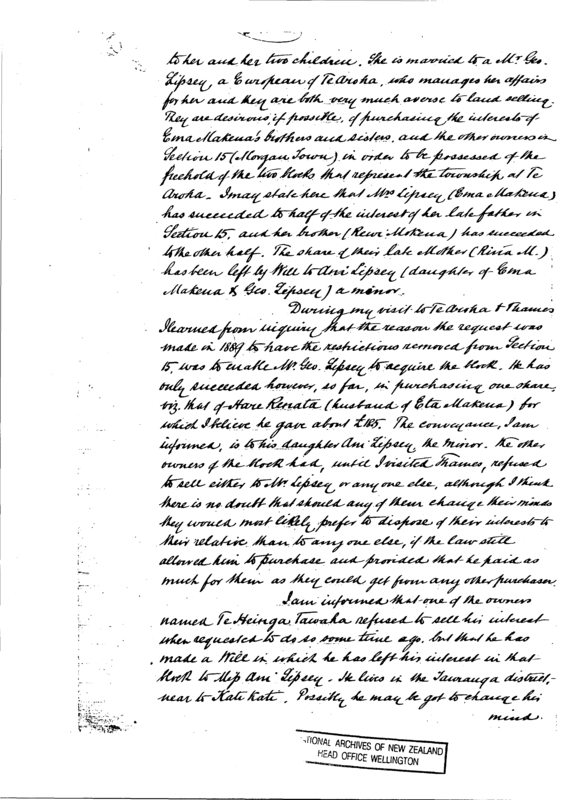 to her and her two children. She is married to a Mr. Geo.
Lipsey, a European of Te Aroha, who manages her affairs
for her and they are both very much averse to land selling.
They are desirous, if possible, of purchasing the interests of
Ema Makena's brothers and sisters, and the other owners in
Section 15 (Morgan Town) in order to be possessed of the
freehold of the two blocks that represent the township at Te
Aroha. I may state here that Mrs Lipsey (Ema Makena)
has succeeded to half of the interest of her late father in
Section 15, and her brother (Rewi Mokena) has succeeded
to the other half. The share of their late Mother (Rina M.)
has been left by Will to Ani Lipsey (daughter of Ema
Makena & Geo. Lipsey) a minor.
During my visit to Te Aroha & Thames
I learned from inquiry that the reason the request was
made in 1889 to have the restrictions removed from Section
15, was to enable Mr. Geo. Lipsey to acquire the block. He has
only succeeded however, so far, in purchasing one share,
viz. that of Hare Renata (husband of Eta Makena) for
which I believe he gave about £185. The conveyance, I am
informed, is to his daughter Ani Lipsey, the minor. The other
owners of the block had, until I visited Thames, refused
to sell either to Mr Lipsey or any one else, although I think
there is no doubt that should any of them change their minds
they would most likely prefer to dispose of their interests to
their relative than to any one else, if the law still
allowed him to purchase and provided that he paid as
much for them as they could get from any other purchaser.
I am informed that one of the owners
named Te Heinga Tawaka refused to sell his interest
when requested to do so some time ago, but that he has
made a Will in which he has left his interest in that
block to Miss Ani Lipsey. He lives in the Tauranga district,
near to Kati Kati. Possibly he may be got to change his
mind.
NATIONAL ARCHIVES OF NEW ZEALAND
HEAD OFFICE WELLINGTON